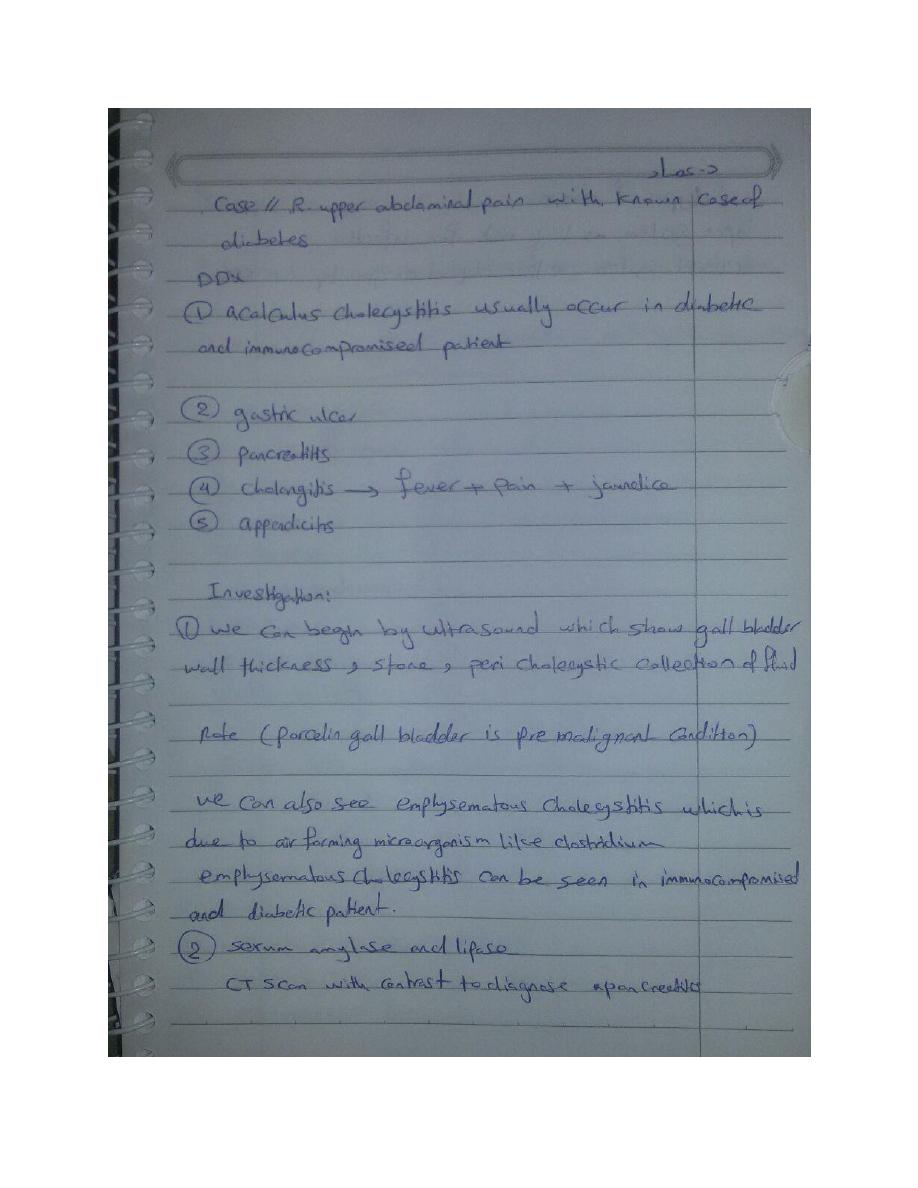 Case // R. upper abdominal pain with known case of
diabetes
DDx
① acalculus cholecystitis usually occur in diabetic
and immunocompromised patient
② gastric ulcer
③ pancreatitis
④ cholangitis → fever + pain + jaundice
⑤ appendicitis
Investigation:
① we can begin by ultrasound which show gall bladder
wall thickness, stone, peri cholecystic collection of fluid
Note (porcelin gall bladder is pre malignant condition)
we can also see emphysematous cholecystitis which is
due to air forming microorganism like clostridium
emphysematous cholecystitis can be seen in immunocompromised
and diabetic patient.
② serum amylase and lipase
CT scan with contrast to diagnose a pancreatitis